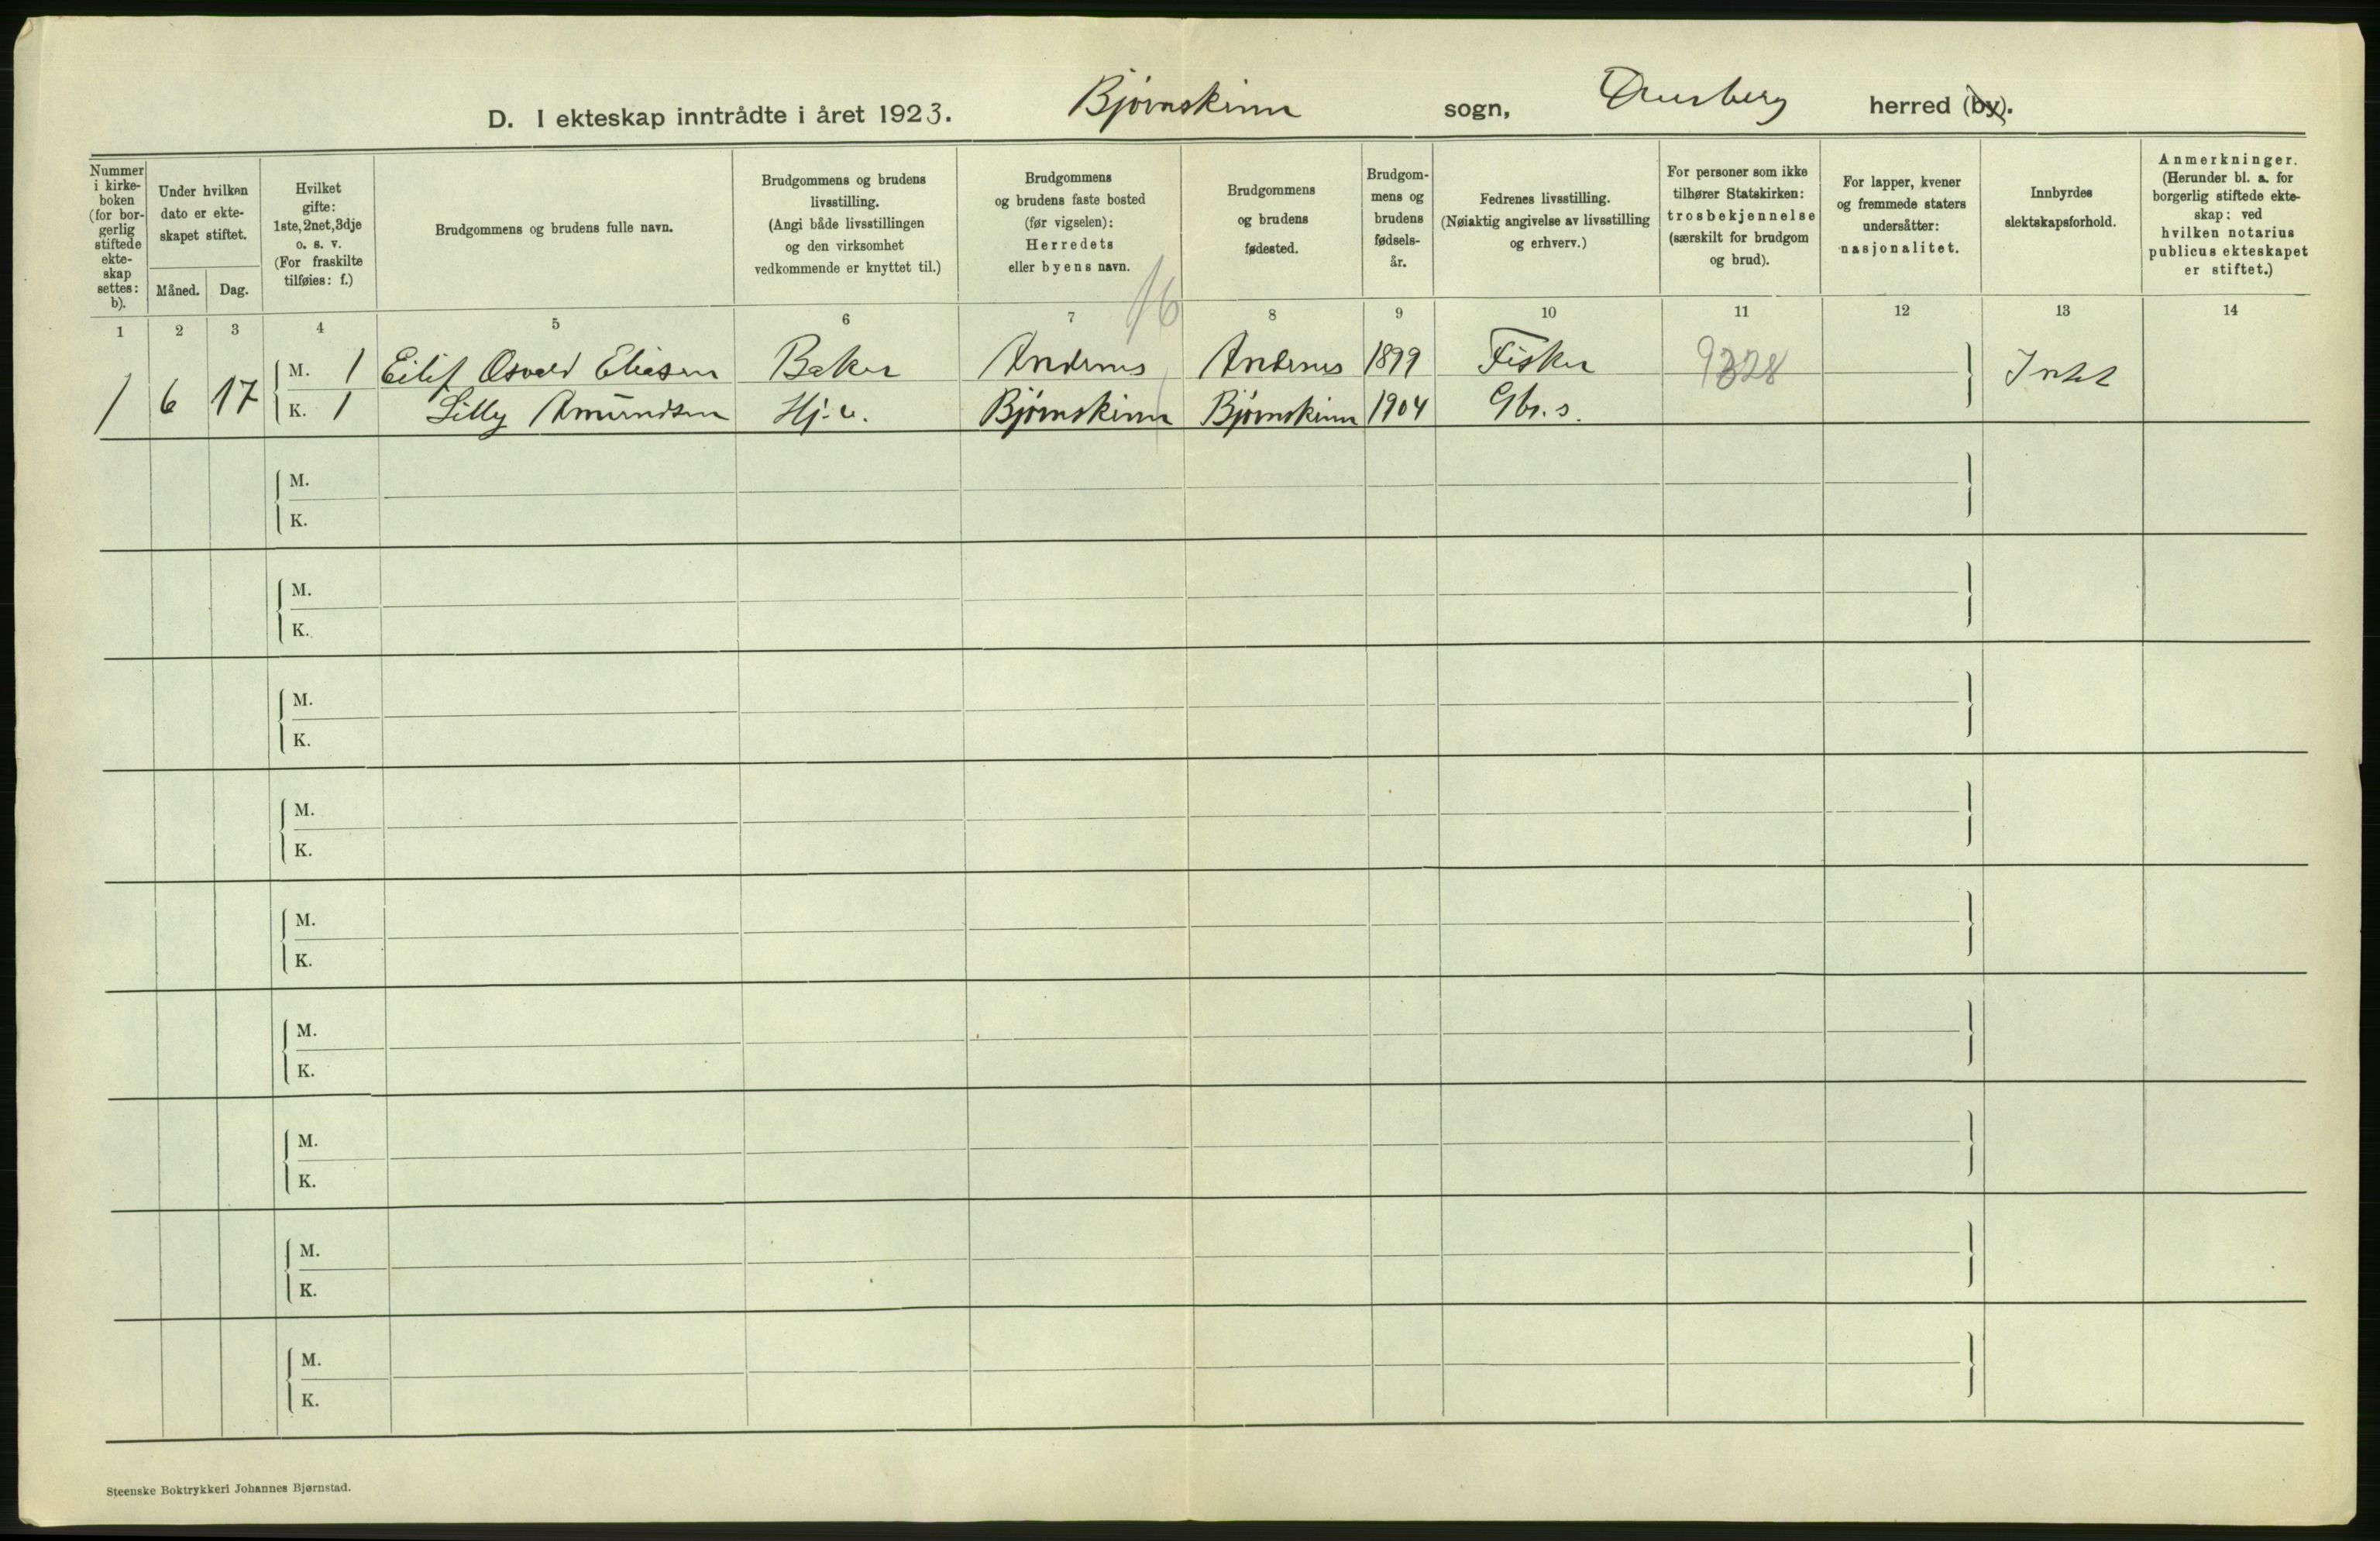 D. I ekteskap inntrådte i året 1923. Bjørnskinn sogn, Dverberg herred (by).
Nummer
i kirke-
boken
(for bor-
gerlig
stiftede
ekte-
skap
settes:
b).
Under hvilken
dato er ekte-
skapet stiftet.
Måned. Dag.
Hvilket
gifte:
1ste, 2net, 3dje
o. s. v.
(For fraskilte
tilføies: f.)
Brudgommens og brudens fulle navn.
Brudgommens og brudens
livsstilling.
(Angi både livsstillingen
og den virksomhet
vedkommende er knyttet til.)
Brudgommens
og brudens faste bosted
(før vigselen):
Herredets
eller byens navn.
Brudgommens
og brudens
fødested.
Brudgom-
mens og
brudens
fødsels-
år.
Fedrenes livsstilling.
(Nøiaktig angivelse av livsstilling
og erhverv.)
For personer som ikke
tilhører Statskirken:
trosbekjennelse
(særskilt for brudgom
og brud).
For lapper, kvener
og fremmede staters
undersåtter:
nasjonalitet.
Innbyrdes
slektskapsforhold.
Anmerkninger.
(Herunder bl. a. for
borgerlig stiftede ekte-
skap: ved
hvilken notarius
publicus ekteskapet
er stiftet.)
16
1 2 3 4 5 6 7 8 9 10 11 12 13 14
M. 1 Eilif Osvald Eliasen Baker Andenes Andenes 1899 Fisker 9328
1 6 17 Intet
K. 1 Lilly Amundsen Hj. u. Bjørnskinn Bjørnskinn 1904 Gbr. s.
M.
K.
M.
K.
M.
K.
M.
K.
M.
K.
M.
K.
M.
K.
M.
K.
M.
K.
Steenske Boktrykkeri Johannes Bjørnstad.